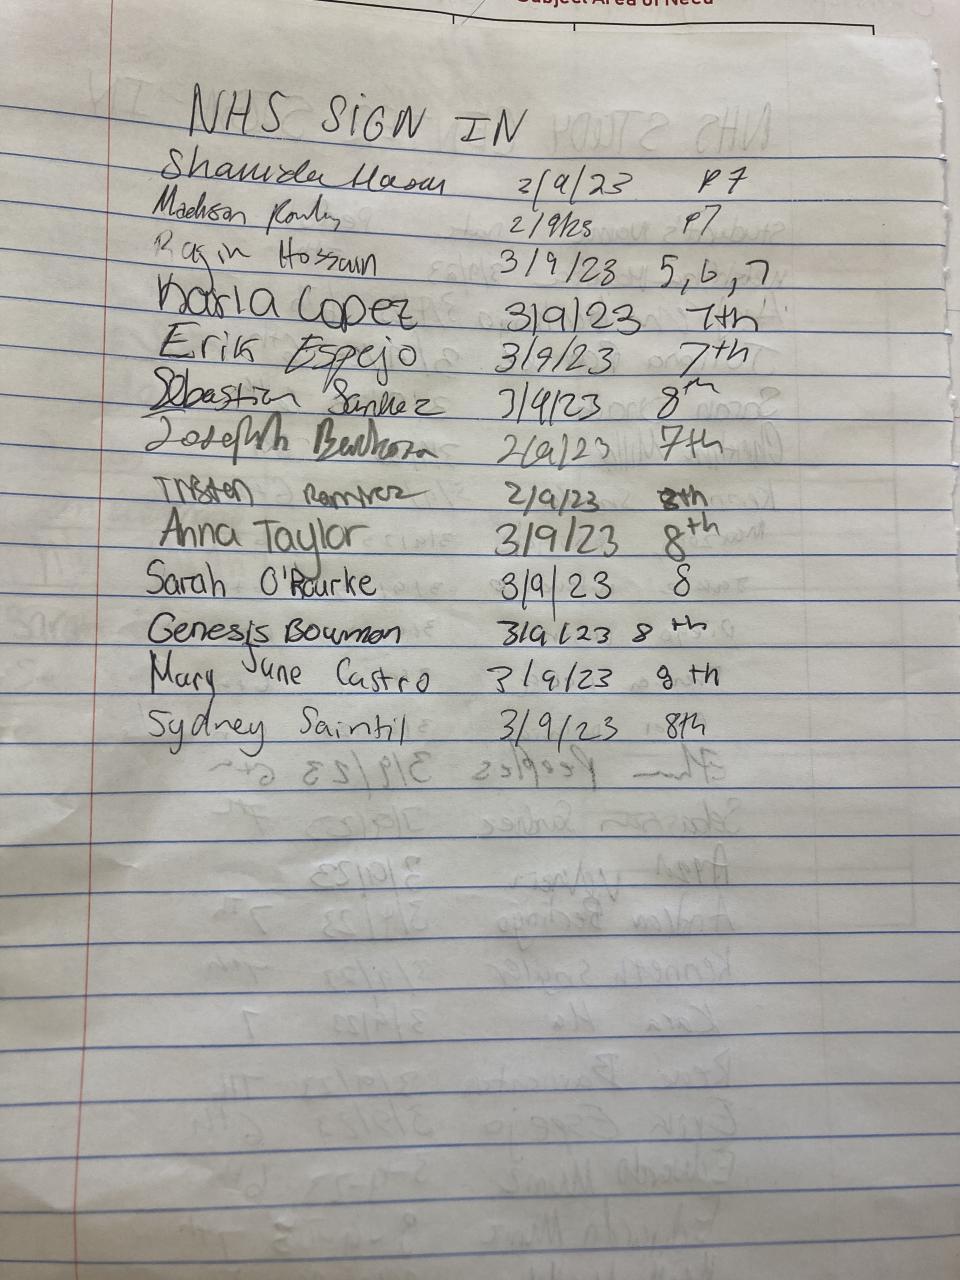 Subject Area of Need
NHS SIGN IN
Hasan 2/9/23 P7
Madison 2/9/23 P7
Hossain 3/9/23 5,6,7
Karla Lopez 3/9/23 7th
Erik Espejo 3/9/23 7th
Sebastian Sanhez 3/9/23 8th
Joseph 2/9/23 7th
Tristen Ramirez 2/9/23 8th
Anna Taylor 3/9/23 8th
Sarah O'Rourke 3/9/23 8
Genesis Bowman 3/9/23 8th
Mary June Castro 3/9/23 8th
Sydney Saintil 3/9/23 8th